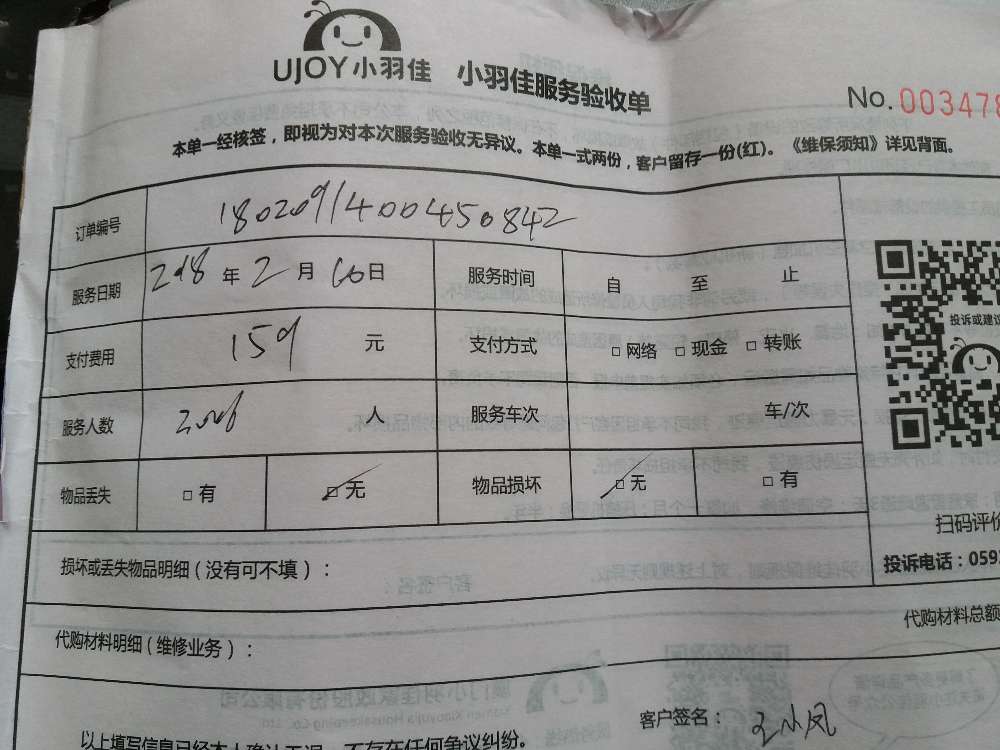 UJOY小羽佳 小羽佳服务验收单
No. 003478
本单一经核签，即视为对本次服务验收无异议。本单一式两份，客户留存一份(红)。《维保须知》详见背面。
订单编号 18020914004450842
服务日期 2018年2月10日 服务时间 自 至 止
支付费用 159 元 支付方式 □网络 □现金 □转账
投诉或建议
服务人数 人 服务车次 车/次
物品丢失 □有 □无 物品损坏 □无 □有
扫码评价
损坏或丢失物品明细（没有可不填）：
投诉电话：059
代购材料总额
代购材料明细（维修业务）：
客户签名：王小凤
以上填写信息已经本人确认无误，不存在任何争议纠纷。